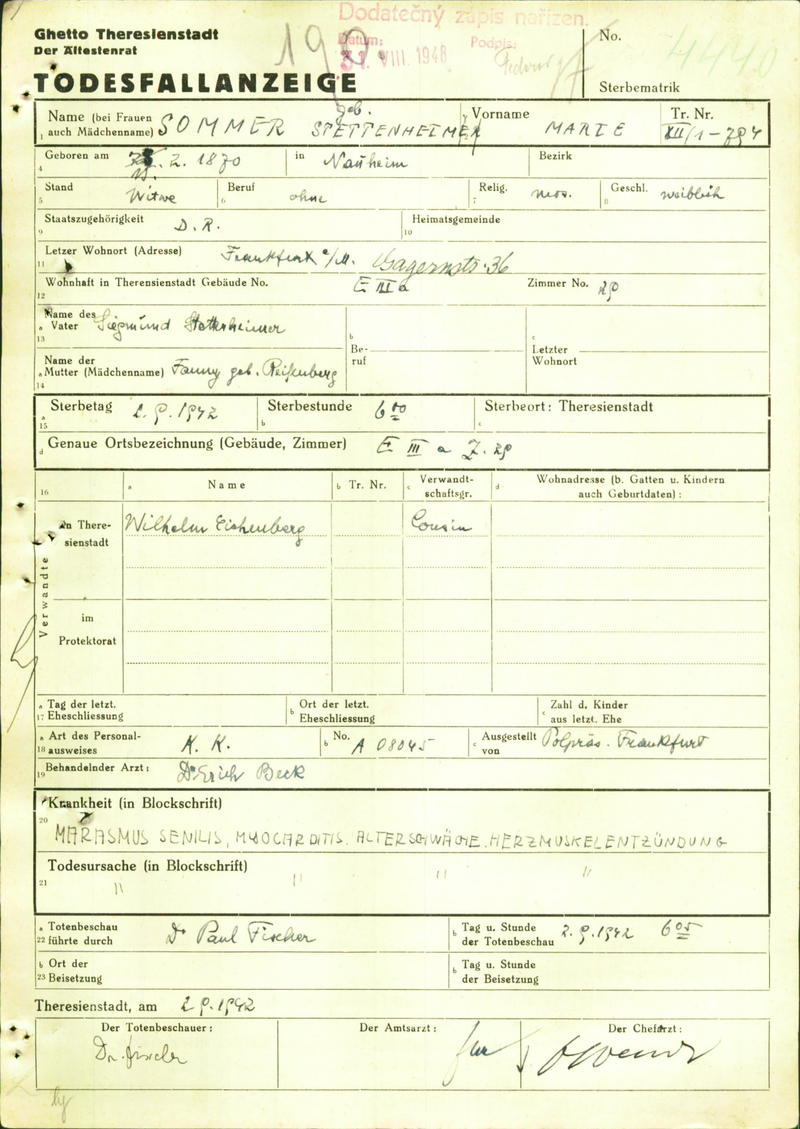 Dodatečný zápis nařízen.
Ghetto Theresienstadt
Der Ältestenrat
Datum: 31. VIII. 1948 Podpis:
No.
TODESFALLANZEIGE
Sterbematrik
Name (bei Frauen auch Mädchenname) SOMMER geb. STETTENHEIMER Vorname MARIE Tr. Nr. XII/1-794
Geboren am 2. 1870 in Nauheim Bezirk
Stand Witwe Beruf ohne Relig. mos. Geschl. weiblich
Staatszugehörigkeit D. R. Heimatsgemeinde
Letzer Wohnort (Adresse) Frankfurt a/M. Gagernstr. 36
Wohnhaft in Theresienstadt Gebäude No. E III a Zimmer No. 29
Name des Vater Siegmund Stettenheimer Beruf Letzter Wohnort
Name der Mutter (Mädchenname) Fanny geb. Reifenberg
Sterbetag 2. 9. 1942 Sterbestunde 6 00 Sterbeort: Theresienstadt
Genaue Ortsbezeichnung (Gebäude, Zimmer) E III a Z. 29
16 a Name b Tr. Nr. c Verwandtschaftsgr. d Wohnadresse (b. Gatten u. Kindern auch Geburtdaten):
Verwandte
in Theresienstadt Wilhelm Eichenberg Cousin
im Protektorat
Tag der letzt. Eheschliessung Ort der letzt. Eheschliessung Zahl d. Kinder aus letzt. Ehe
Art des Personalausweises K. K. No. A 08045 Ausgestellt von Polpräs. Frankfurt
Behandelnder Arzt: Dr Erich Beck
Krankheit (in Blockschrift)
MARASMUS SENILIS, MYOCARDITIS. ALTERSCHWÄCHE. HERZMUSKELENTZÜNDUNG
Todesursache (in Blockschrift)
21 " " " "
Totenbeschau führte durch Dr Paul Fischer Tag u. Stunde der Totenbeschau 2. 9. 1942 6 05
Ort der Beisetzung Tag u. Stunde der Beisetzung
Theresienstadt, am 2. 9. 1942
Der Totenbeschauer: Der Amtsarzt: Der Chefarzt:
Dr. Fischer